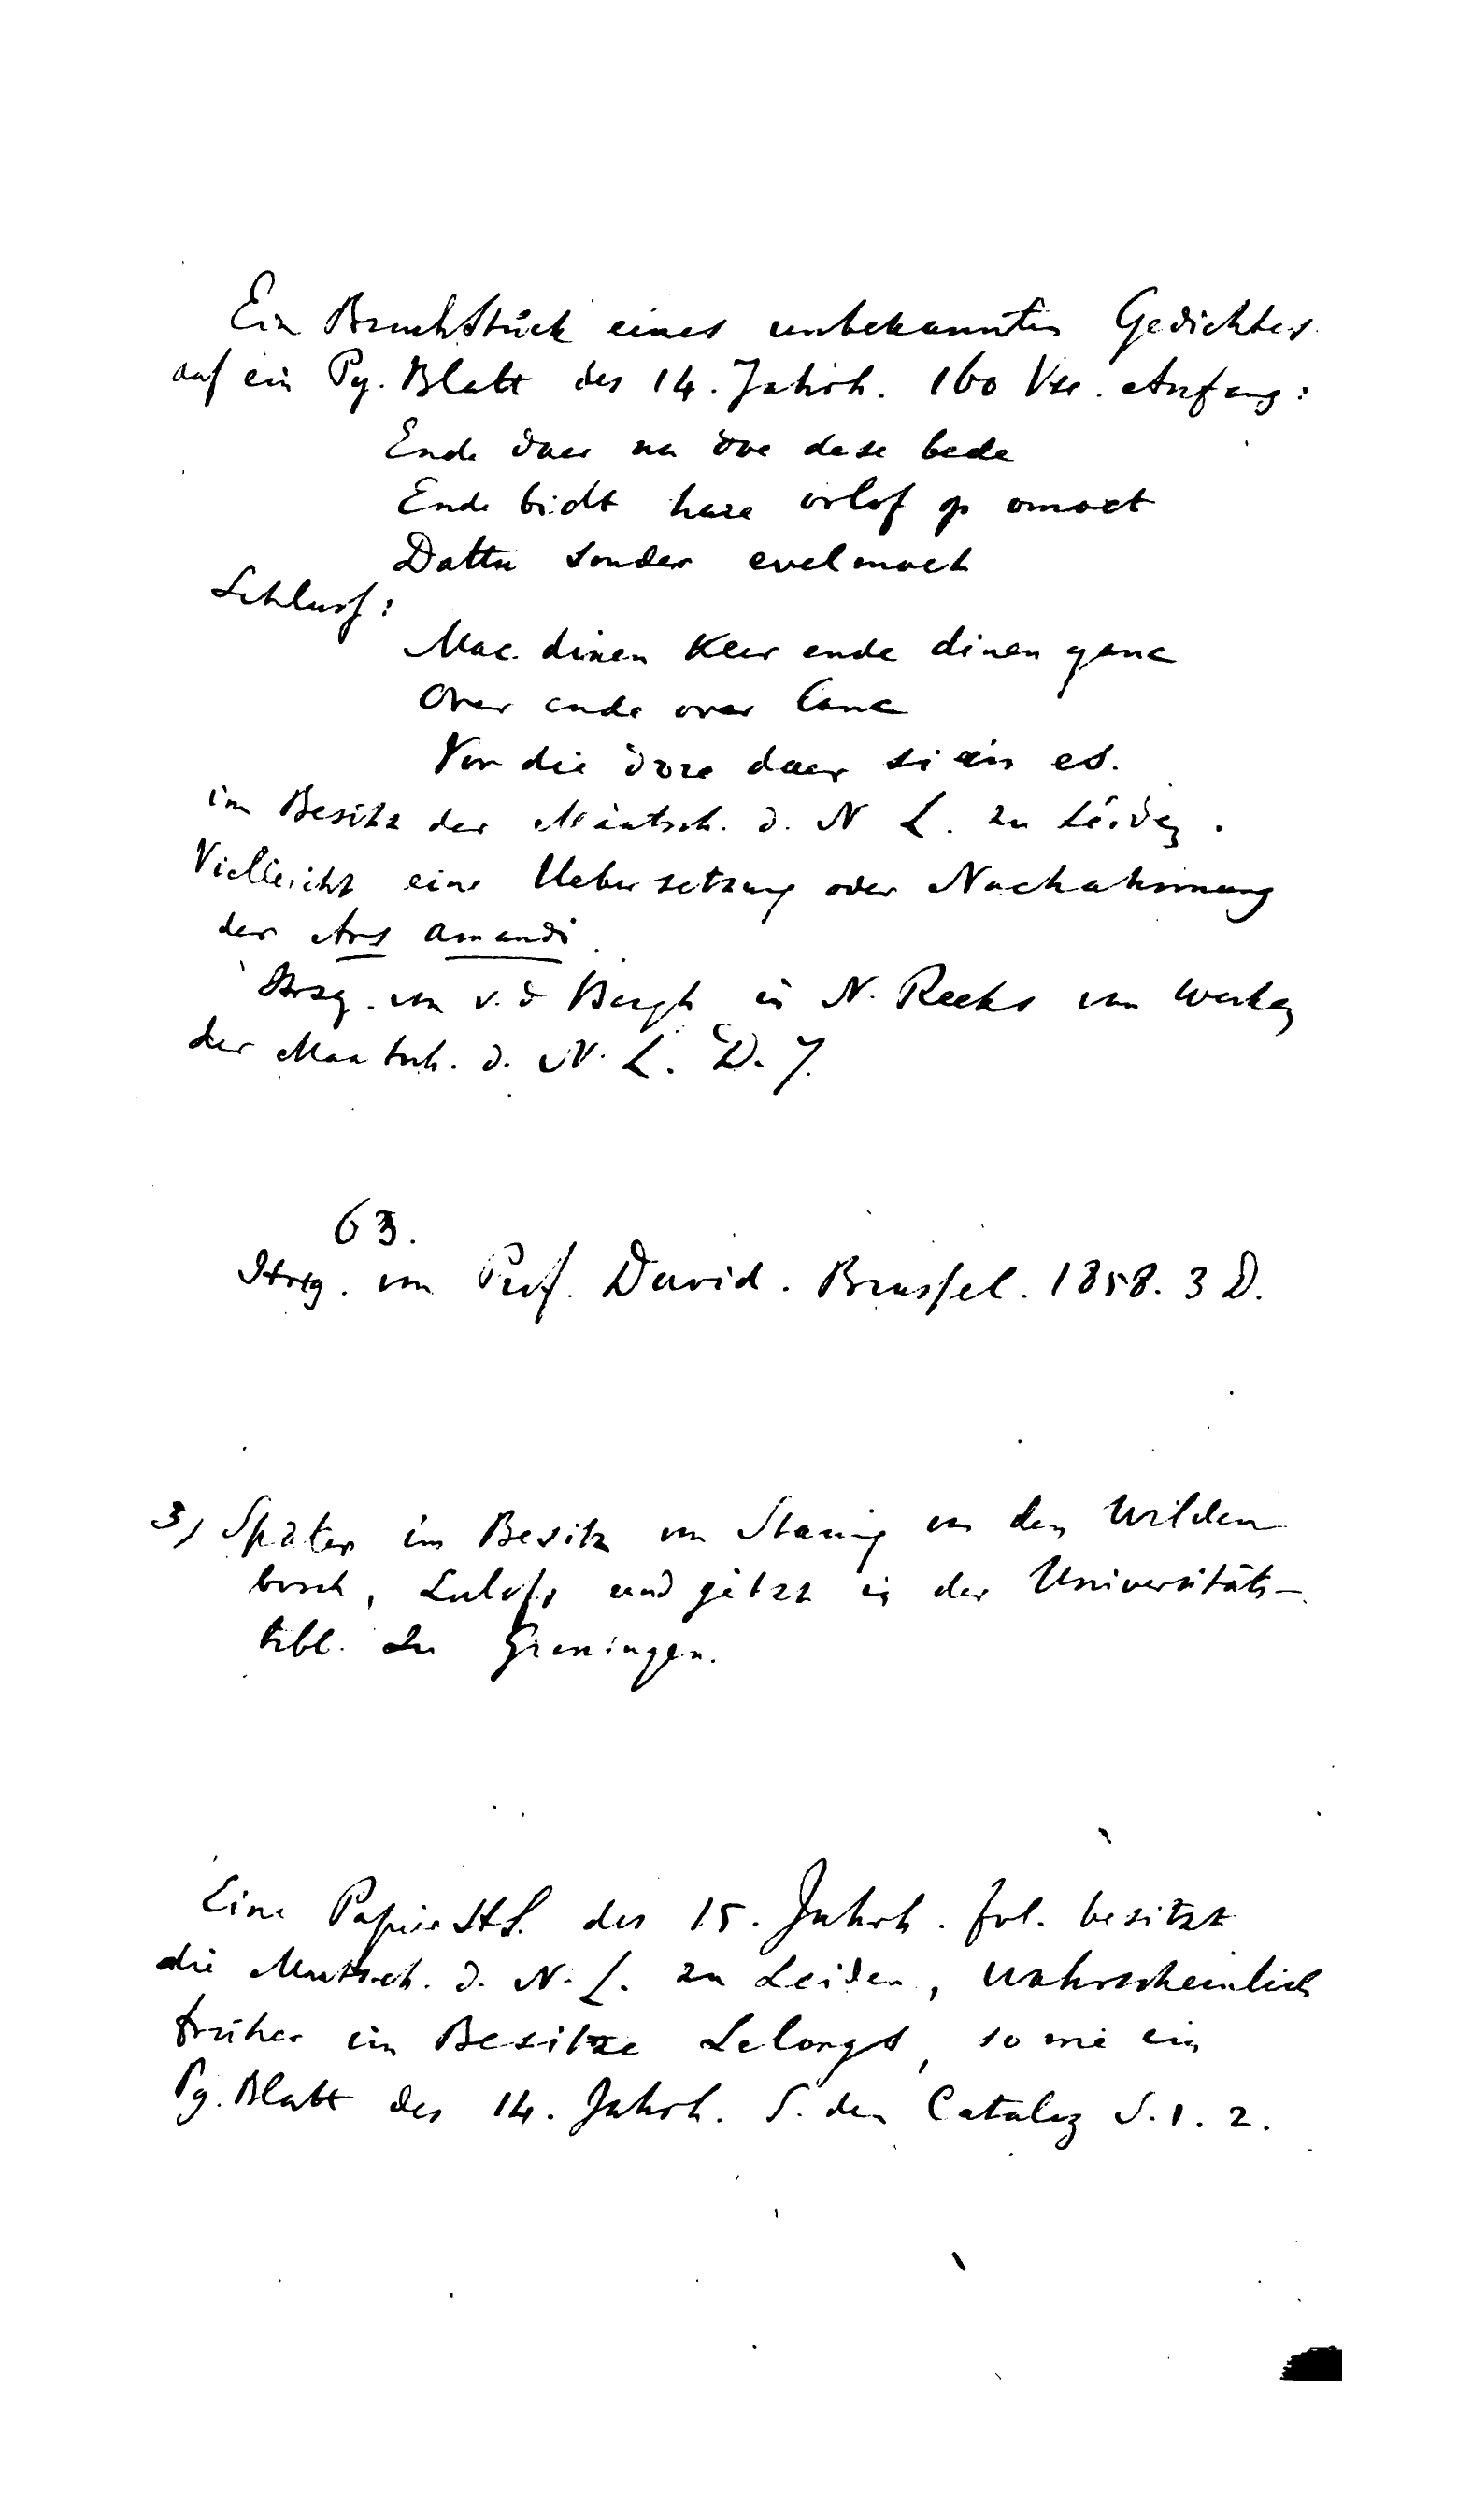 Ein Bruchstück eines unbekannten Gedichtes
auf ein Pg. Blatt des 14. Jahrh. 160 Vse. Anfang:
Ende daer na doe dese bede
Ende bidt hare orlof op omoet
Dattu sonder evelmoet
Schluss:
Mac dinen keer ende dinen ganc
Over ende over lanc
Vor die dore daer si in es.
im Besitz der Maatsch. d. N L. zu Leiden.
Vielleicht eine Uebersetzung oder Nachahmung
der Ars amandi.
Hrsg. von v. d Bergh in N. Reeks van Werken
der Maatsch. d. N. L. D. 7.
63.
Hrsg. von Prof. David. Brussel. 1858. 3 D.
3) Später im Besitz von Staring van den Wilden
bosch, Lulofs und jetzt in der Universitäts-
bibl. zu Groningen.
Eine Papier HS. des 15. Jahrh. fol. besitzt
die Maatsch. d. N. L. zu Leiden, wahrscheinlich
früher im Besitze Lelongs, so wie ein
Pg. Blatt des 14. Jahrh. S. den Catalog S. 1. 2.